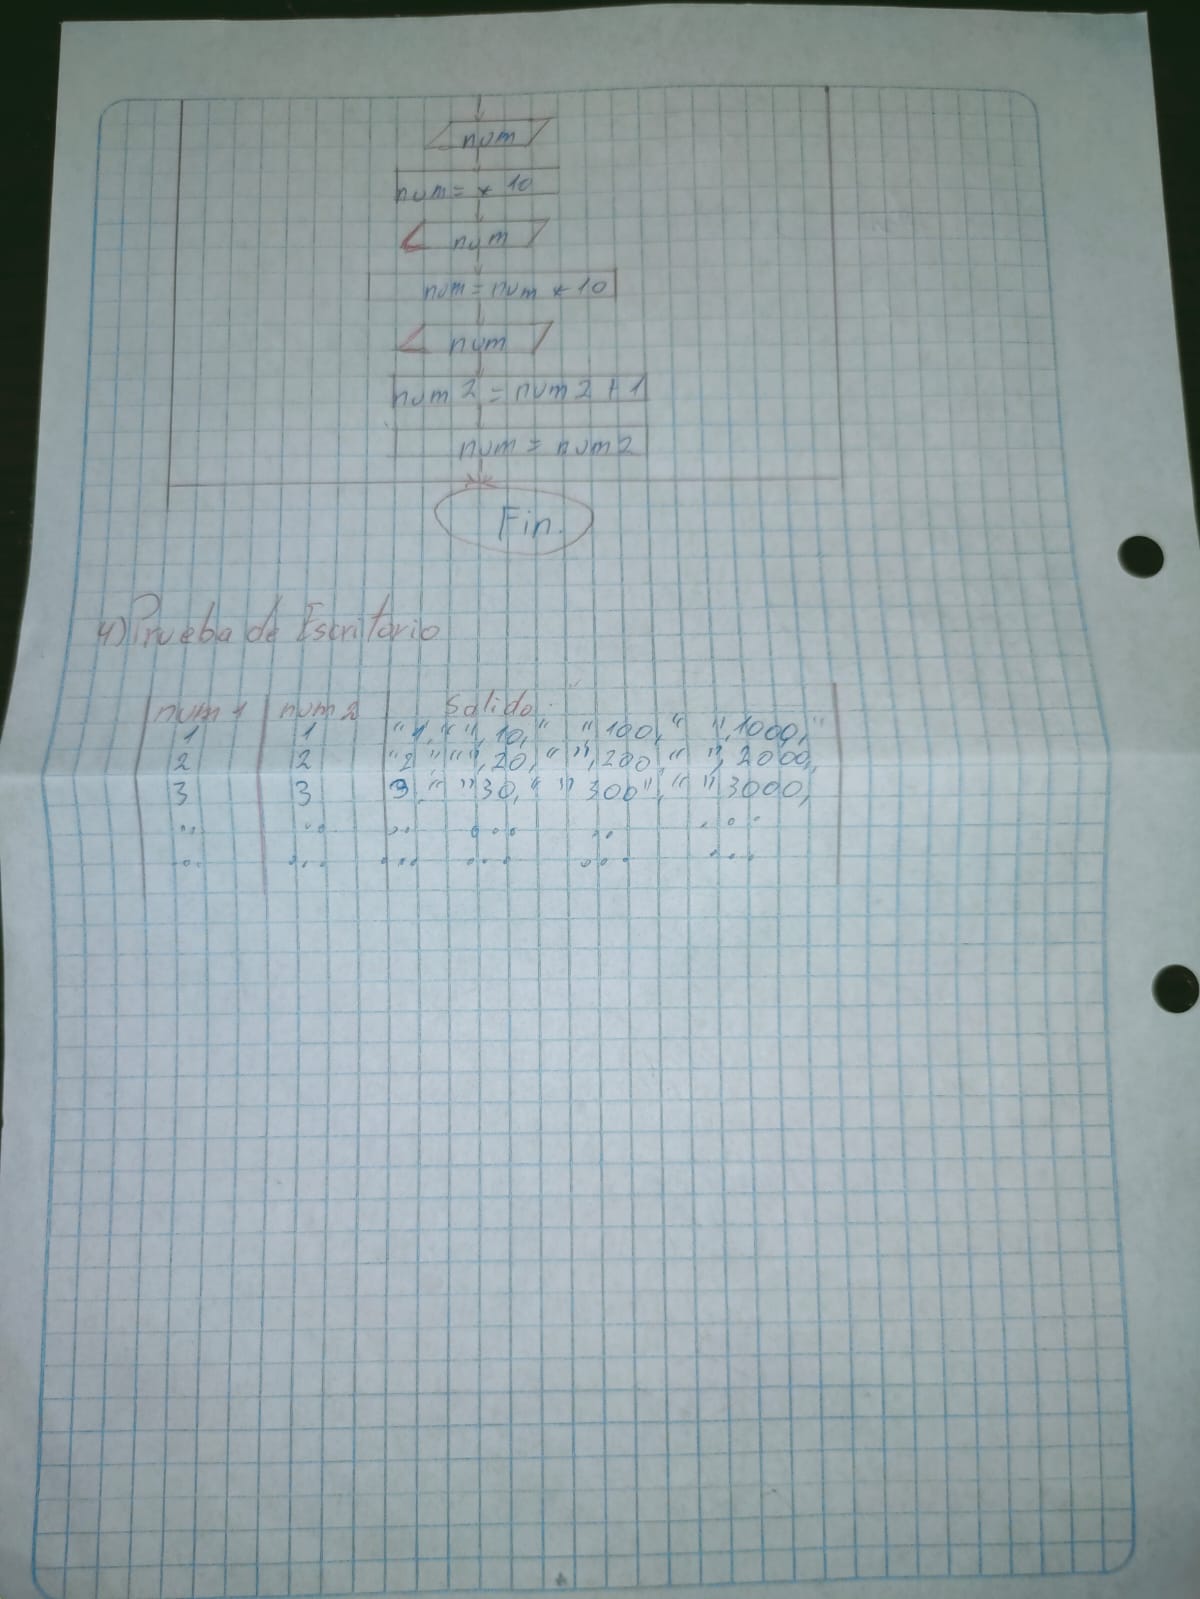 num
num= * 10
num
num = num * 10
num
num 2 = num 2 + 1
num = num 2
Fin.
4) Prueba de Escritorio
num 1 num 2 Salida.
1 1 "1," ",10," "100," ",1000,"
2 2 "2," "",20," ",200," ", 2000,
3 3 3," "30," " 300", " "3000,
.. .. .. ... .. ...
.. ... ... ... ... ...